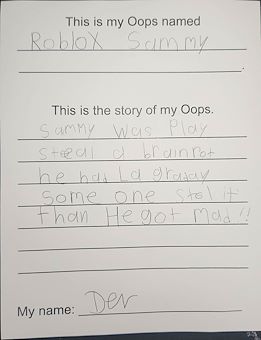 This is my Oops named
Roblox Sammy
This is the story of my Oops.
Sammy was Play
steal a brainrot
he had La graday
some one stol it
than He got mad !!
My name: Dev